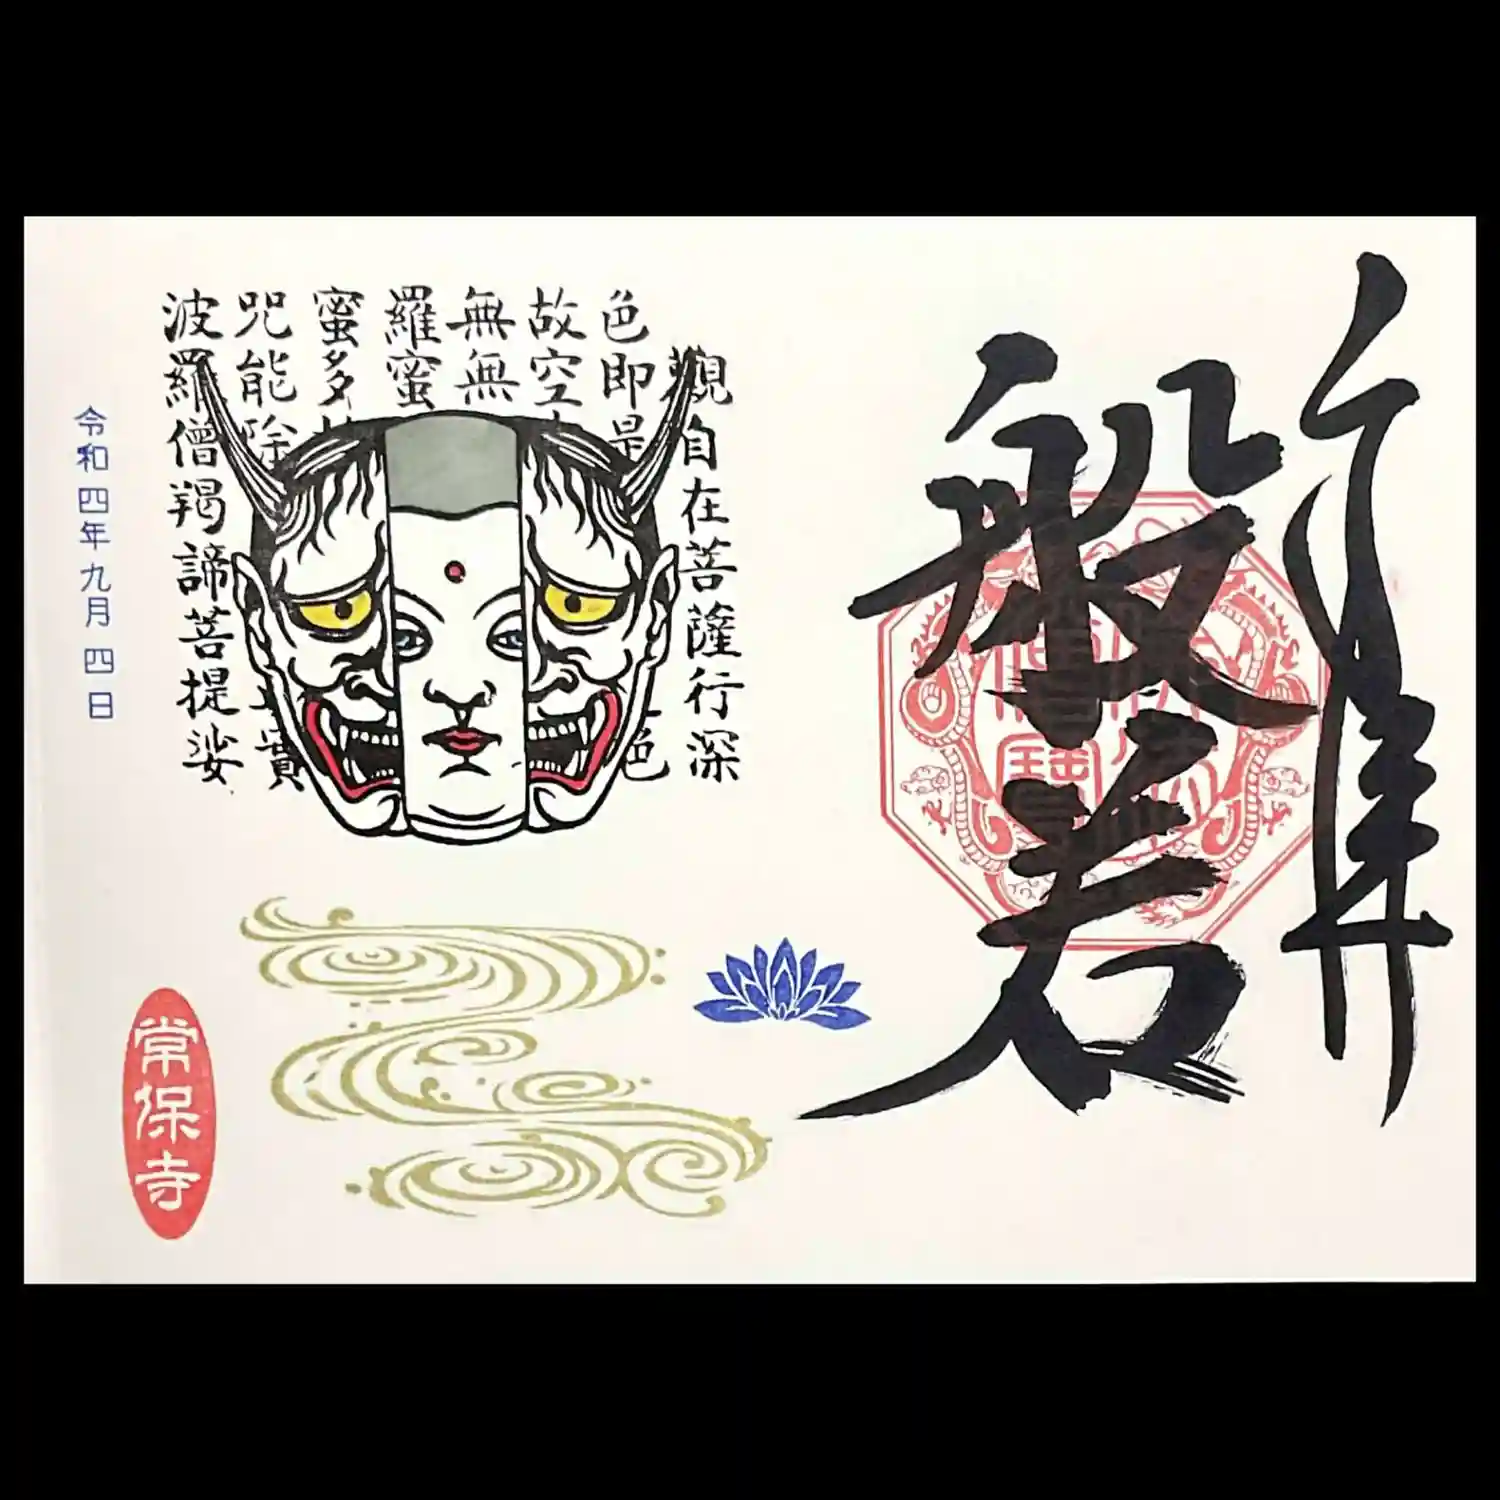 奉拝
般若
佛法僧寶
觀自在菩薩行深
色即是
故空
無無
羅蜜
蜜多
咒能除
波羅僧羯諦菩提娑
令和四年九月四日
常保寺